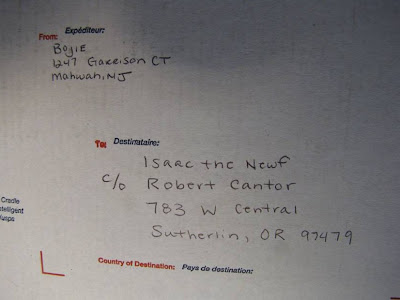 Expéditeur:
From:
Bojie
1247 Garrison CT
Mahwah, NJ
To: Destinataire:
Isaac the Newf
c/o Robert Cantor
783 W Central
Sutherlin, OR 97479
Cradle
ntelligent
Country of Destination: Pays de destination: